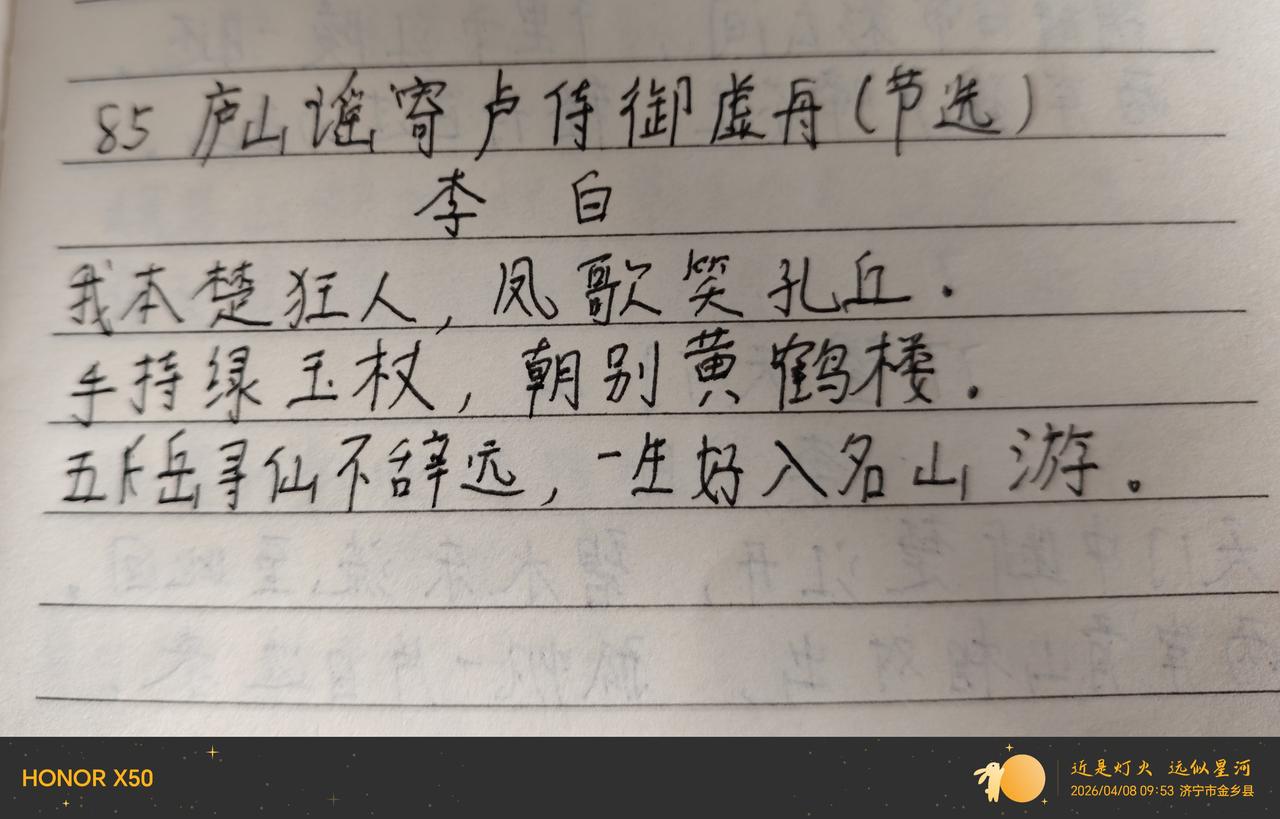 85 庐山谣寄卢侍御虚舟(节选)
李 白
我本楚狂人,凤歌笑孔丘.
手持绿玉杖,朝别黄鹤楼.
五岳寻仙不辞远,一生好入名山游。
HONOR X50
近是灯火 远似星河
2026/04/08 09:53 济宁市金乡县